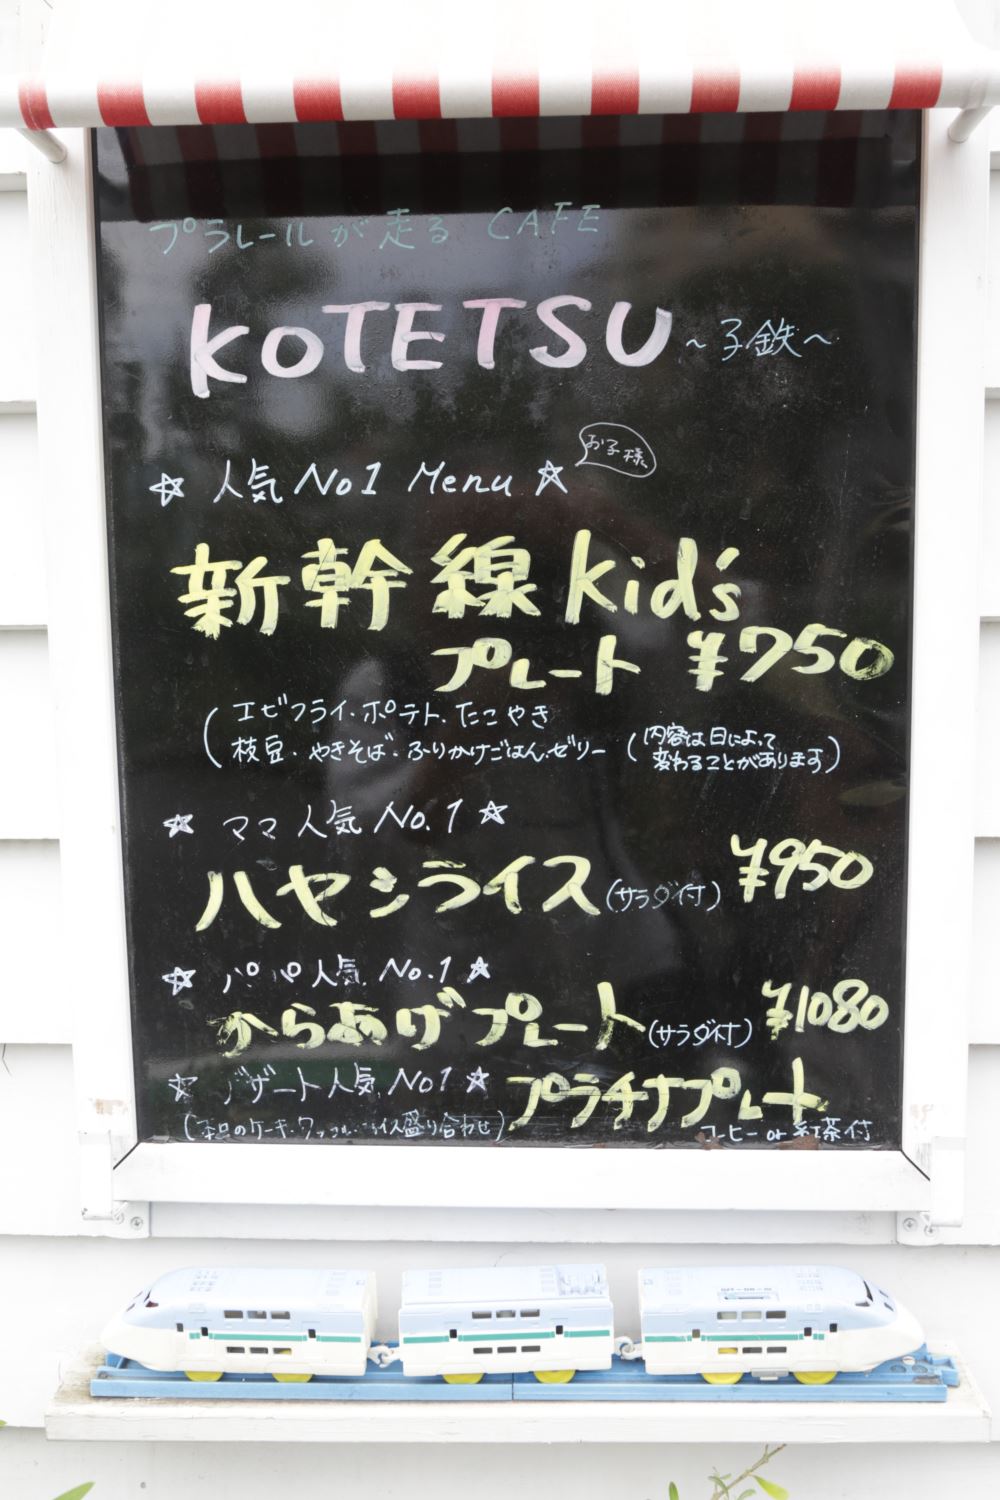 プラレールが走る CAFE
KOTETSU ～子鉄～
お子様
☆ 人気 No1 Menu ☆
新幹線 kid's
プレート ¥750
(エビフライ・ポテト・たこやき
枝豆・やきそば・ふりかけごはん・ゼリー (内容は日によって
変わることがあります)
☆ ママ人気 No.1 ☆
ハヤシライス (サラダ付) ¥950
☆ パパ人気 No.1 ☆
からあげプレート (サラダ付) ¥1080
☆ デザート人気 No1 ☆ プラチナプレート
(本日のケーキ・ワッフル・アイス盛り合わせ) コーヒー or 紅茶付